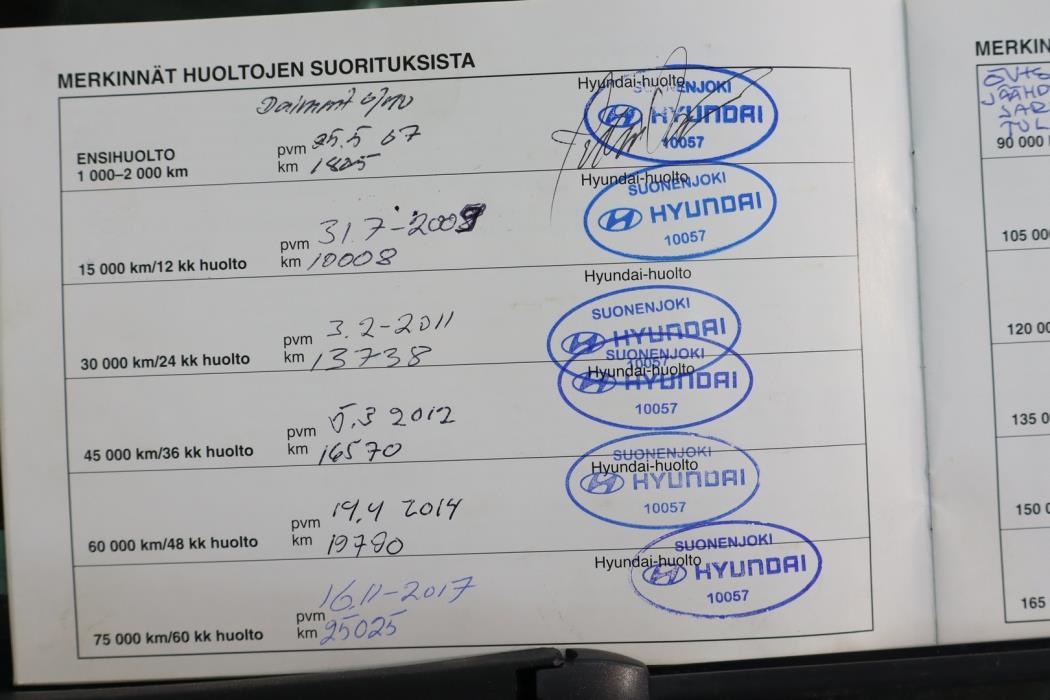 MERKINNÄT HUOLTOJEN SUORITUKSISTA
Hyundai-huolto
SUONENJOKI
HYUNDAI
10057
ENSIHUOLTO
1 000–2 000 km
pvm 25.5 07
km 1825
Hyundai-huolto
SUONENJOKI
HYUNDAI
10057
15 000 km/12 kk huolto
pvm 31.7-2009
km 10008
Hyundai-huolto
SUONENJOKI
HYUNDAI
10057
30 000 km/24 kk huolto
pvm 3.2-2011
km 13738
Hyundai-huolto
SUONENJOKI
HYUNDAI
10057
45 000 km/36 kk huolto
pvm 5.3 2012
km 16570
Hyundai-huolto
SUONENJOKI
HYUNDAI
10057
60 000 km/48 kk huolto
pvm 19.4 2014
km 19790
Hyundai-huolto
SUONENJOKI
HYUNDAI
10057
75 000 km/60 kk huolto
pvm 16.11-2017
km 25025
MERKIN
JÄÄHD
90 000
105 00
120 00
135 0
150 0
165